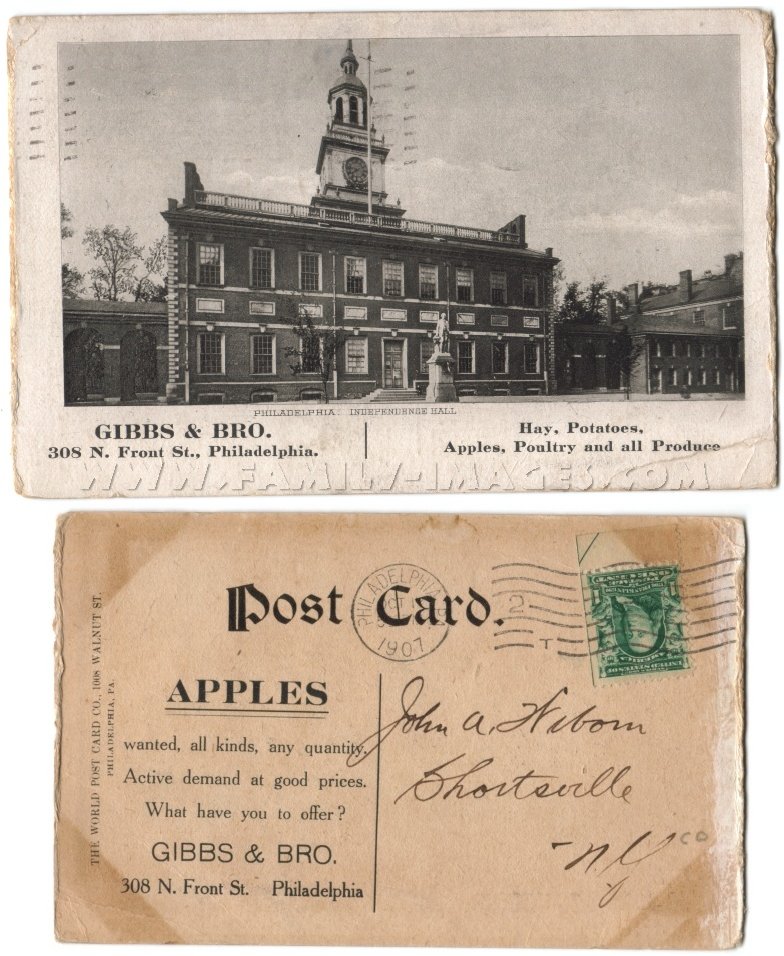 PHILADELPHIA: INDEPENDENCE HALL
GIBBS & BRO.
308 N. Front St., Philadelphia.
Hay, Potatoes,
Apples, Poultry and all Produce
WWW.FAMILY-IMAGES.COM
Post Card.
PHILADELPHIA
1907
2
T
THE WORLD POST CARD CO., 1008 WALNUT ST.
PHILADELPHIA, PA.
APPLES
wanted, all kinds, any quantity.
Active demand at good prices.
What have you to offer?
GIBBS & BRO.
308 N. Front St. Philadelphia
John A.
Shortsville
N.Y.
CO